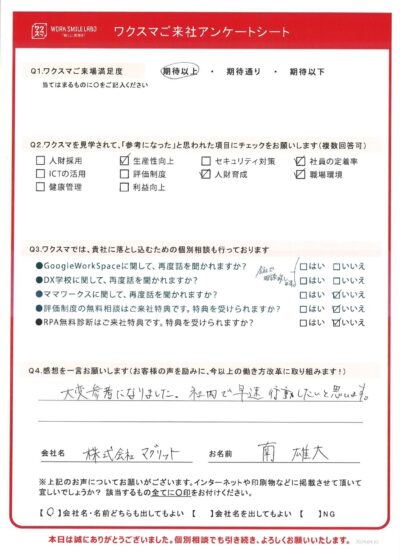 ワクスマ
WORK SMILE LABO
ワクスマご来社アンケートシート
Q1.ワクスマご来場満足度
期待以上 ・ 期待通り ・ 期待以下
当てはまるものに○をご記入ください
Q2.ワクスマを見学されて、「参考になった」と思われた項目にチェックをお願いします(複数回答可)
□人財採用 ☑生産性向上 □セキュリティ対策 ☑社員の定着率
□ICTの活用 □評価制度 ☑人財育成 ☑職場環境
□健康管理 □利益向上
Q3.ワクスマでは、貴社に落とし込むための個別相談も行っております
●GoogleWorkSpaceに関して、再度話を聞かれますか? □はい □いいえ
●DX学校に関して、再度話を聞かれますか? □はい □いいえ
●ママワークスに関して、再度話を聞かれますか? □はい ☑いいえ
●評価制度の無料相談はご来社特典です。特典を受けられますか? □はい ☑いいえ
●RPA無料診断はご来社特典です。特典を受けられますか? □はい ☑いいえ
Q4.感想を一言お願いします(お客様の声を励みに、今以上の働き方改革に取り組みます!)
大変参考になりました。社内で早速行動したいと思います。
会社名 株式会社マグリット お名前 南 雄大
※上記のお声についてお願いがございます。インターネットや印刷物などに掲載させて頂いて
宜しいでしょうか? 該当するもの全てに○印をお付けください。
【○】会社名・名前どちらも出してもよい 【 】会社名を出してもよい 【 】NG
本日は誠にありがとうございました。個別相談でも引き続き、よろしくお願いいたします。